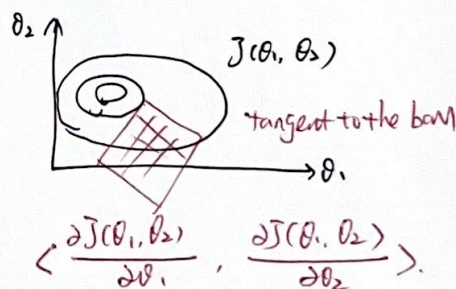 θ₂
J(θ₁, θ₂)
tangent to the bowl
θ₁
< ∂J(θ₁, θ₂)/∂θ₁ , ∂J(θ₁, θ₂)/∂θ₂ >.